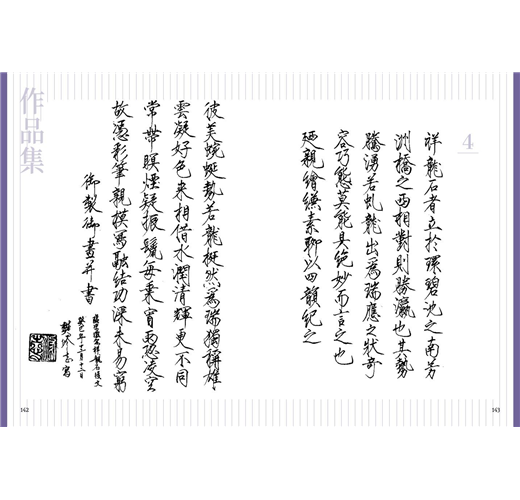 4
祥龍石者立於環碧池之南芳
洲橋之西相對則勝瀛也其勢
騰湧若虬龍出為瑞應之狀奇
容巧態莫能具絕妙而言之也
廼親繪縑素聊以四韻紀之
彼美蜿蜒勢若龍挺然為瑞獨稱雄
雲凝好色來相借水潤清輝更不同
常帶暝煙疑振鬣每乘宵雨恐凌空
故憑彩筆親模寫融結功深未易窮
御製御畫并書
作品集
142
143